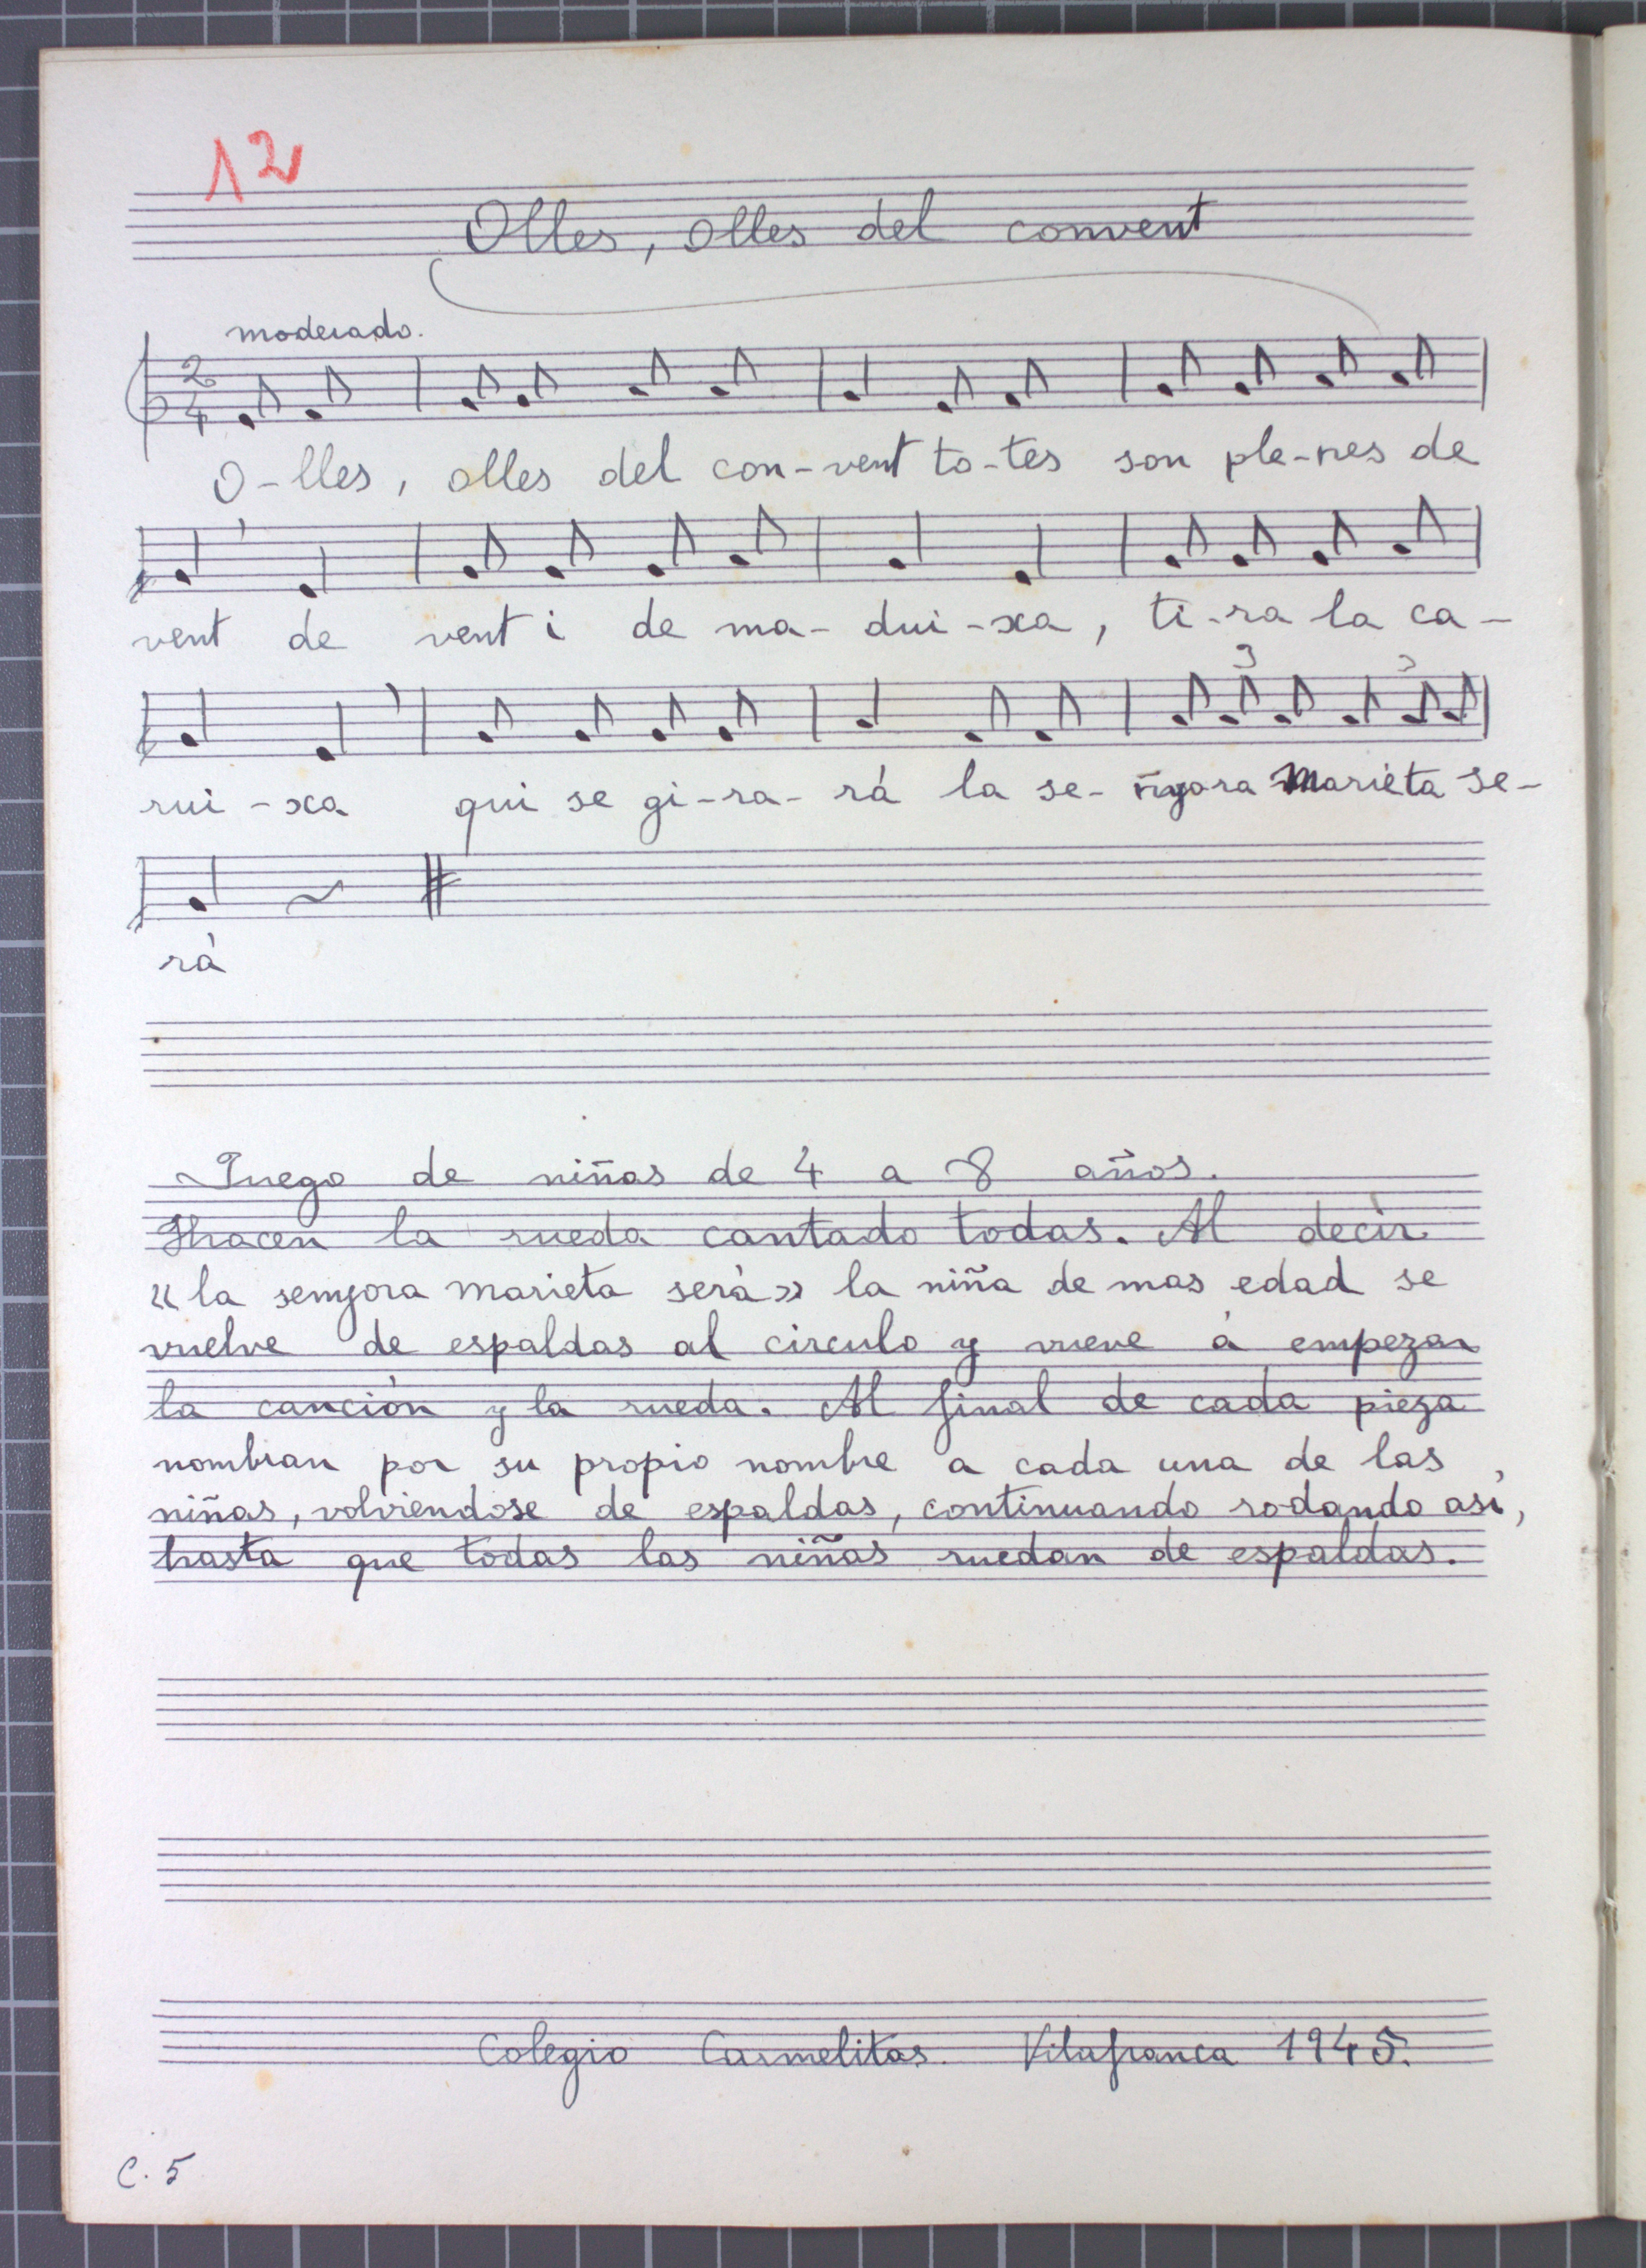 12
Olles, olles del convent
moderado.
2
4
O-lles, olles del con-vent to-tes son ple-nes de
vent de vent i de ma-dui-xa, ti-ra la ca-
3 3
rui-xa qui se gi-ra-rá la se-ñyora Marieta se-
rá
Juego de niñas de 4 a 8 años.
Hhacen la rueda cantado todas. Al decir
«la senyora Marieta será» la niña de mas edad se
vuelve de espaldas al circulo y vueve á empezar
la canción y la rueda. Al final de cada pieza
nombran por su propio nombre a cada una de las
niñas, volviendose de espaldas, continuando rodando así,
hasta que todas las niñas ruedan de espaldas.
Colegio Carmelitas. Vilafranca 1945.
C. 5